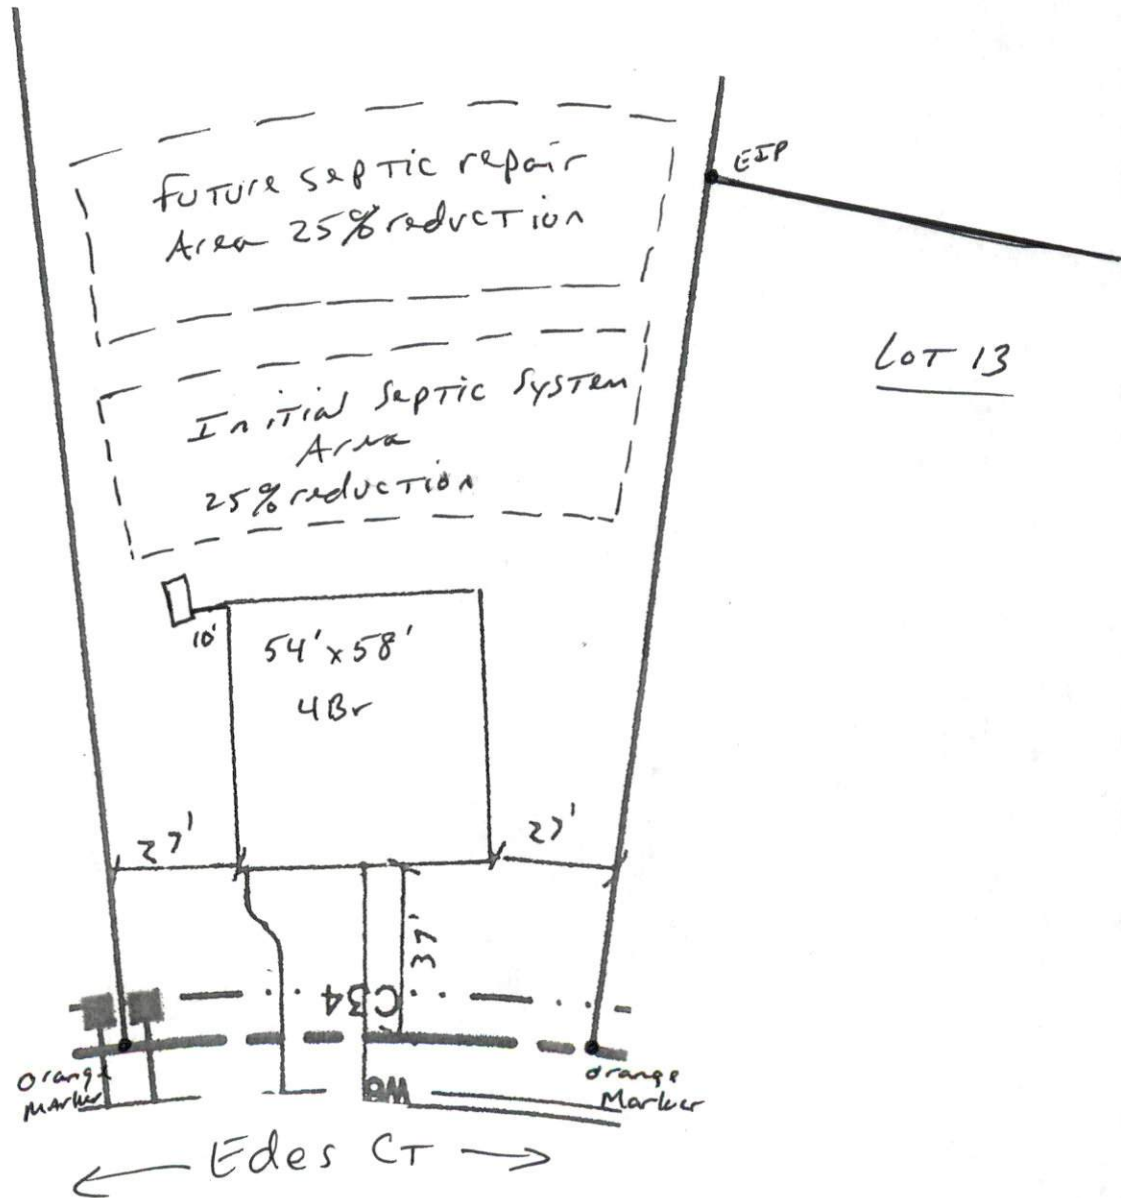 Future septic repair
Area 25% reduction
EIP
LOT 13
Initial Septic System
Area
25% reduction
10'
54' x 58'
4Br
27'
27'
37'
C34
Orange
Marker
WB
Orange
Marker
Edes CT